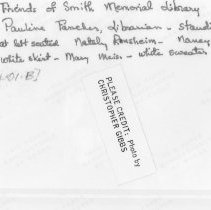 Friends of Smith Memorial Library
Pauline Fancher, Librarian - standi
at left seated Nately Ronsheim - Nancy
white skirt - Mary Meiss - white sweater
1.01-B]
PLEASE CREDIT: Photo by
CHRISTOPHER GIBBS